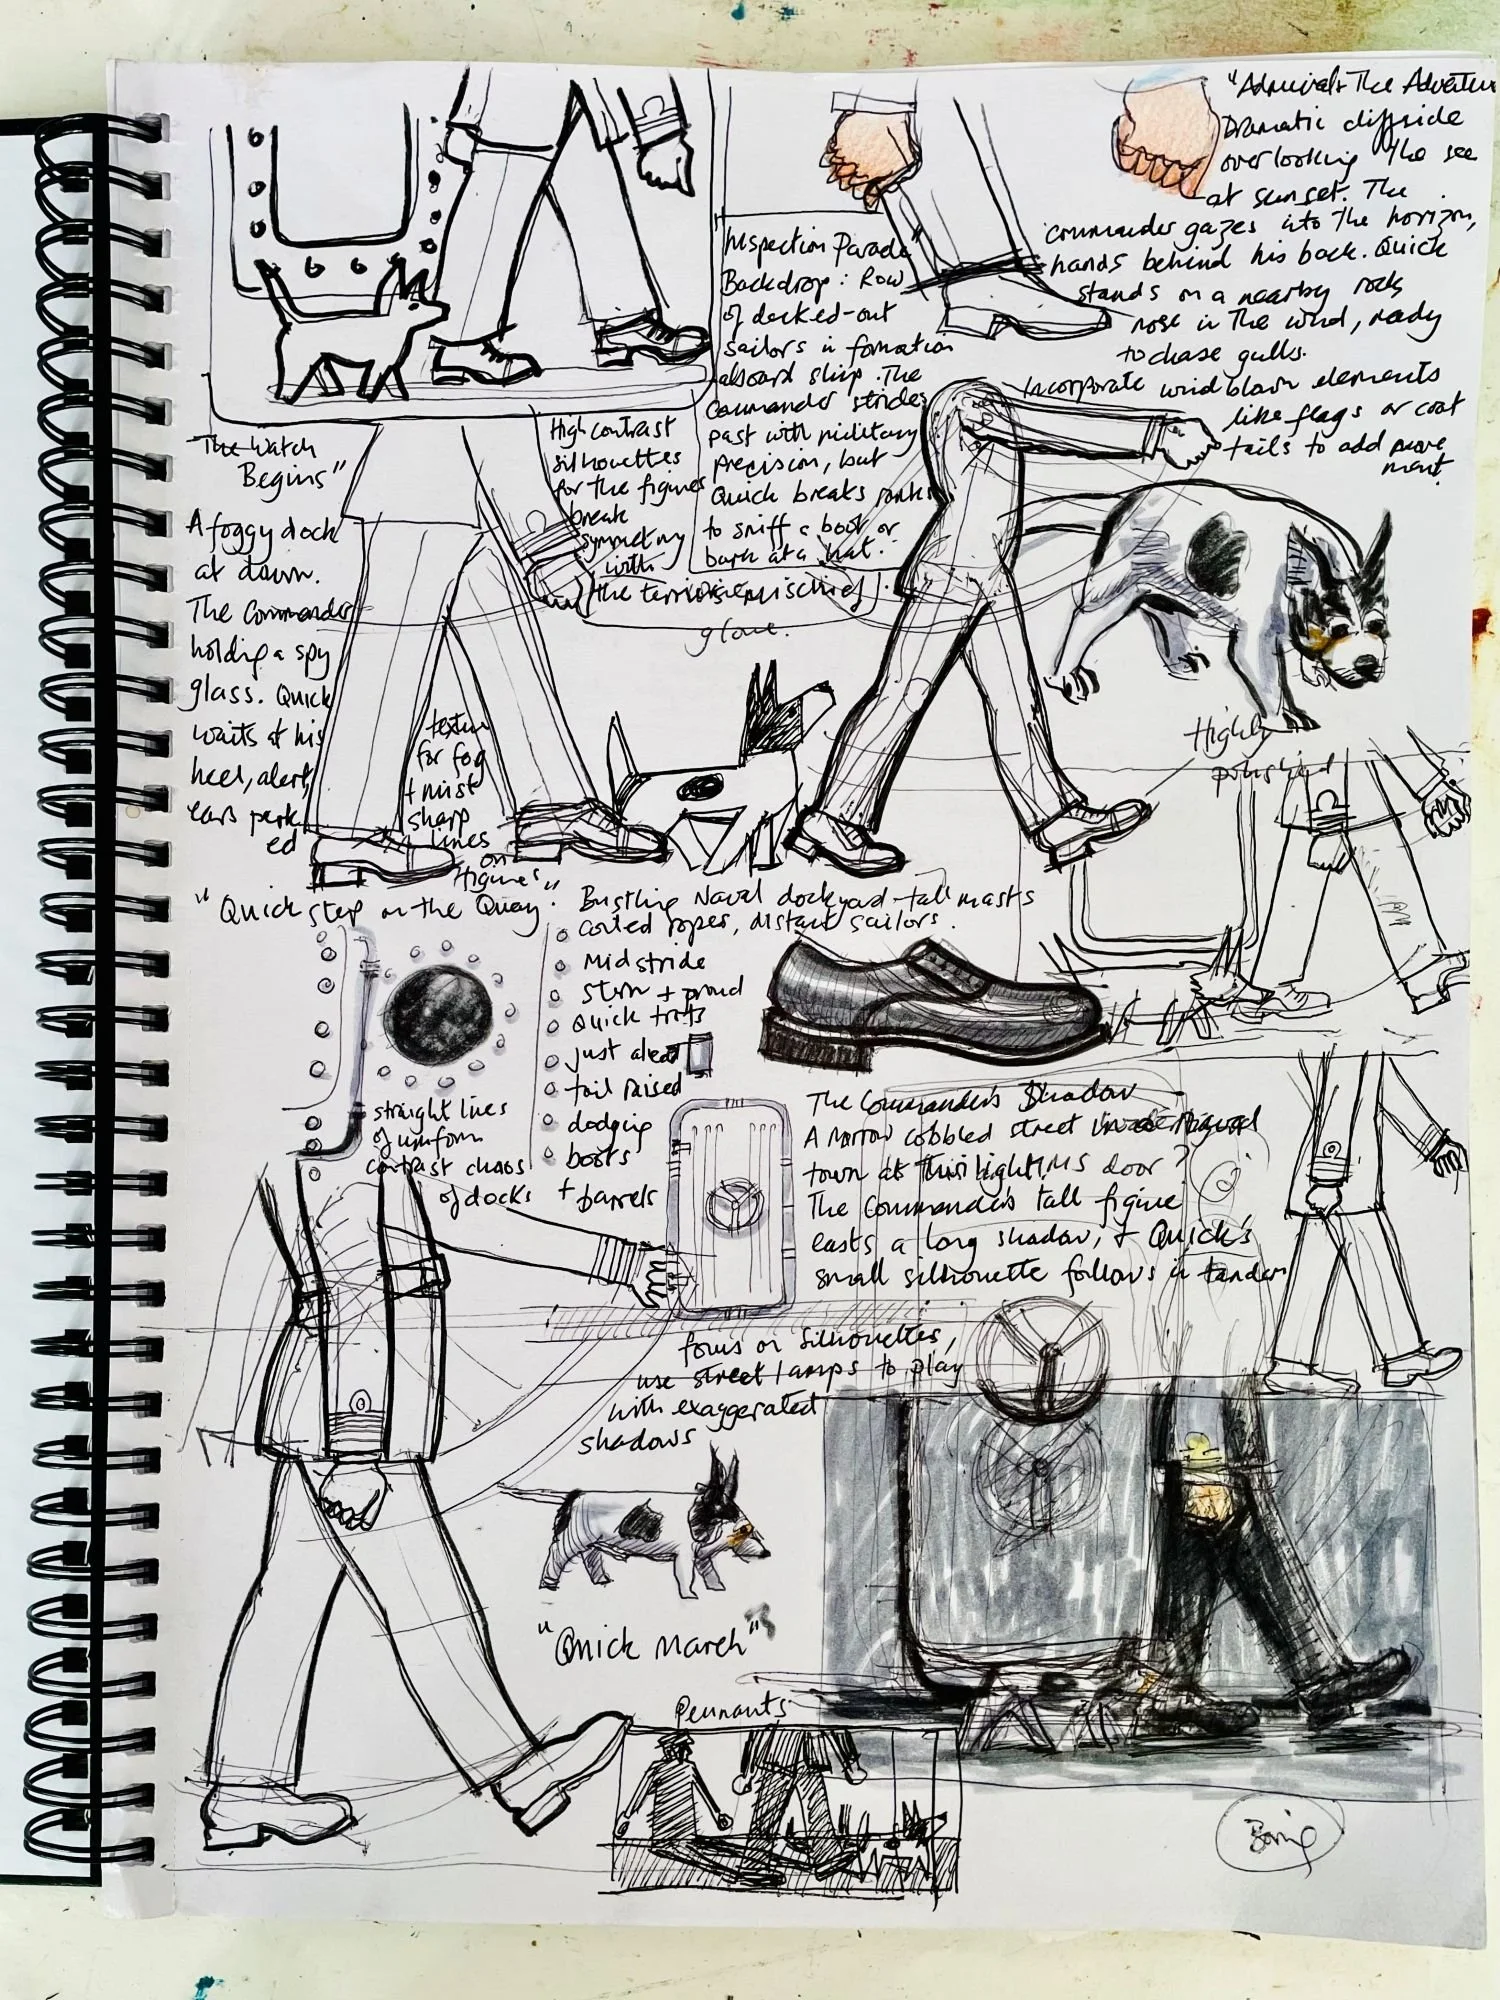 "Admirals The Adventure
Dramatic cliffside
overlooking the see
at sunset. The
commander gazes into the horizon,
hands behind his back. Quick
stands on a nearby rock
nose in the wind, ready
to chase gulls.
Incorporate windblown elements
like flags or coat
tails to add move
ment.
"Inspection Parade"
Backdrop: Row
of decked-out
sailors in formation
aboard ship. The
Commander strides
past with military
precision, but
Quick breaks ranks
to sniff a boot or
bark at a hat.
High contrast
silhouettes
for the figures
break
symmetry
with
the terriers mischief
"The Watch
Begins"
A foggy dock
at dawn.
The Commander
holding a spy
glass. Quick
waits at his
heel, alert,
ears perk
ed
texture
for fog
+ mist
sharp
lines
on
figures
Highly
polished
"Quick step on the Quay".
Bustling Naval dockyard - tall masts
coiled ropes, distant sailors.
Mid stride
stern + proud
Quick trots
just ahead
tail raised
dodging
boots
+ barrels
straight lines
of uniform
contrast chaos
of docks
The Commander's Shadow
A narrow cobbled street in
town at twilight. door?
The Commander's tall figure
casts a long shadow, + Quick's
small silhouette follows in tandem
focus on silhouettes,
use street lamps to play
with exaggerated
shadows
"Quick March"
Pennants